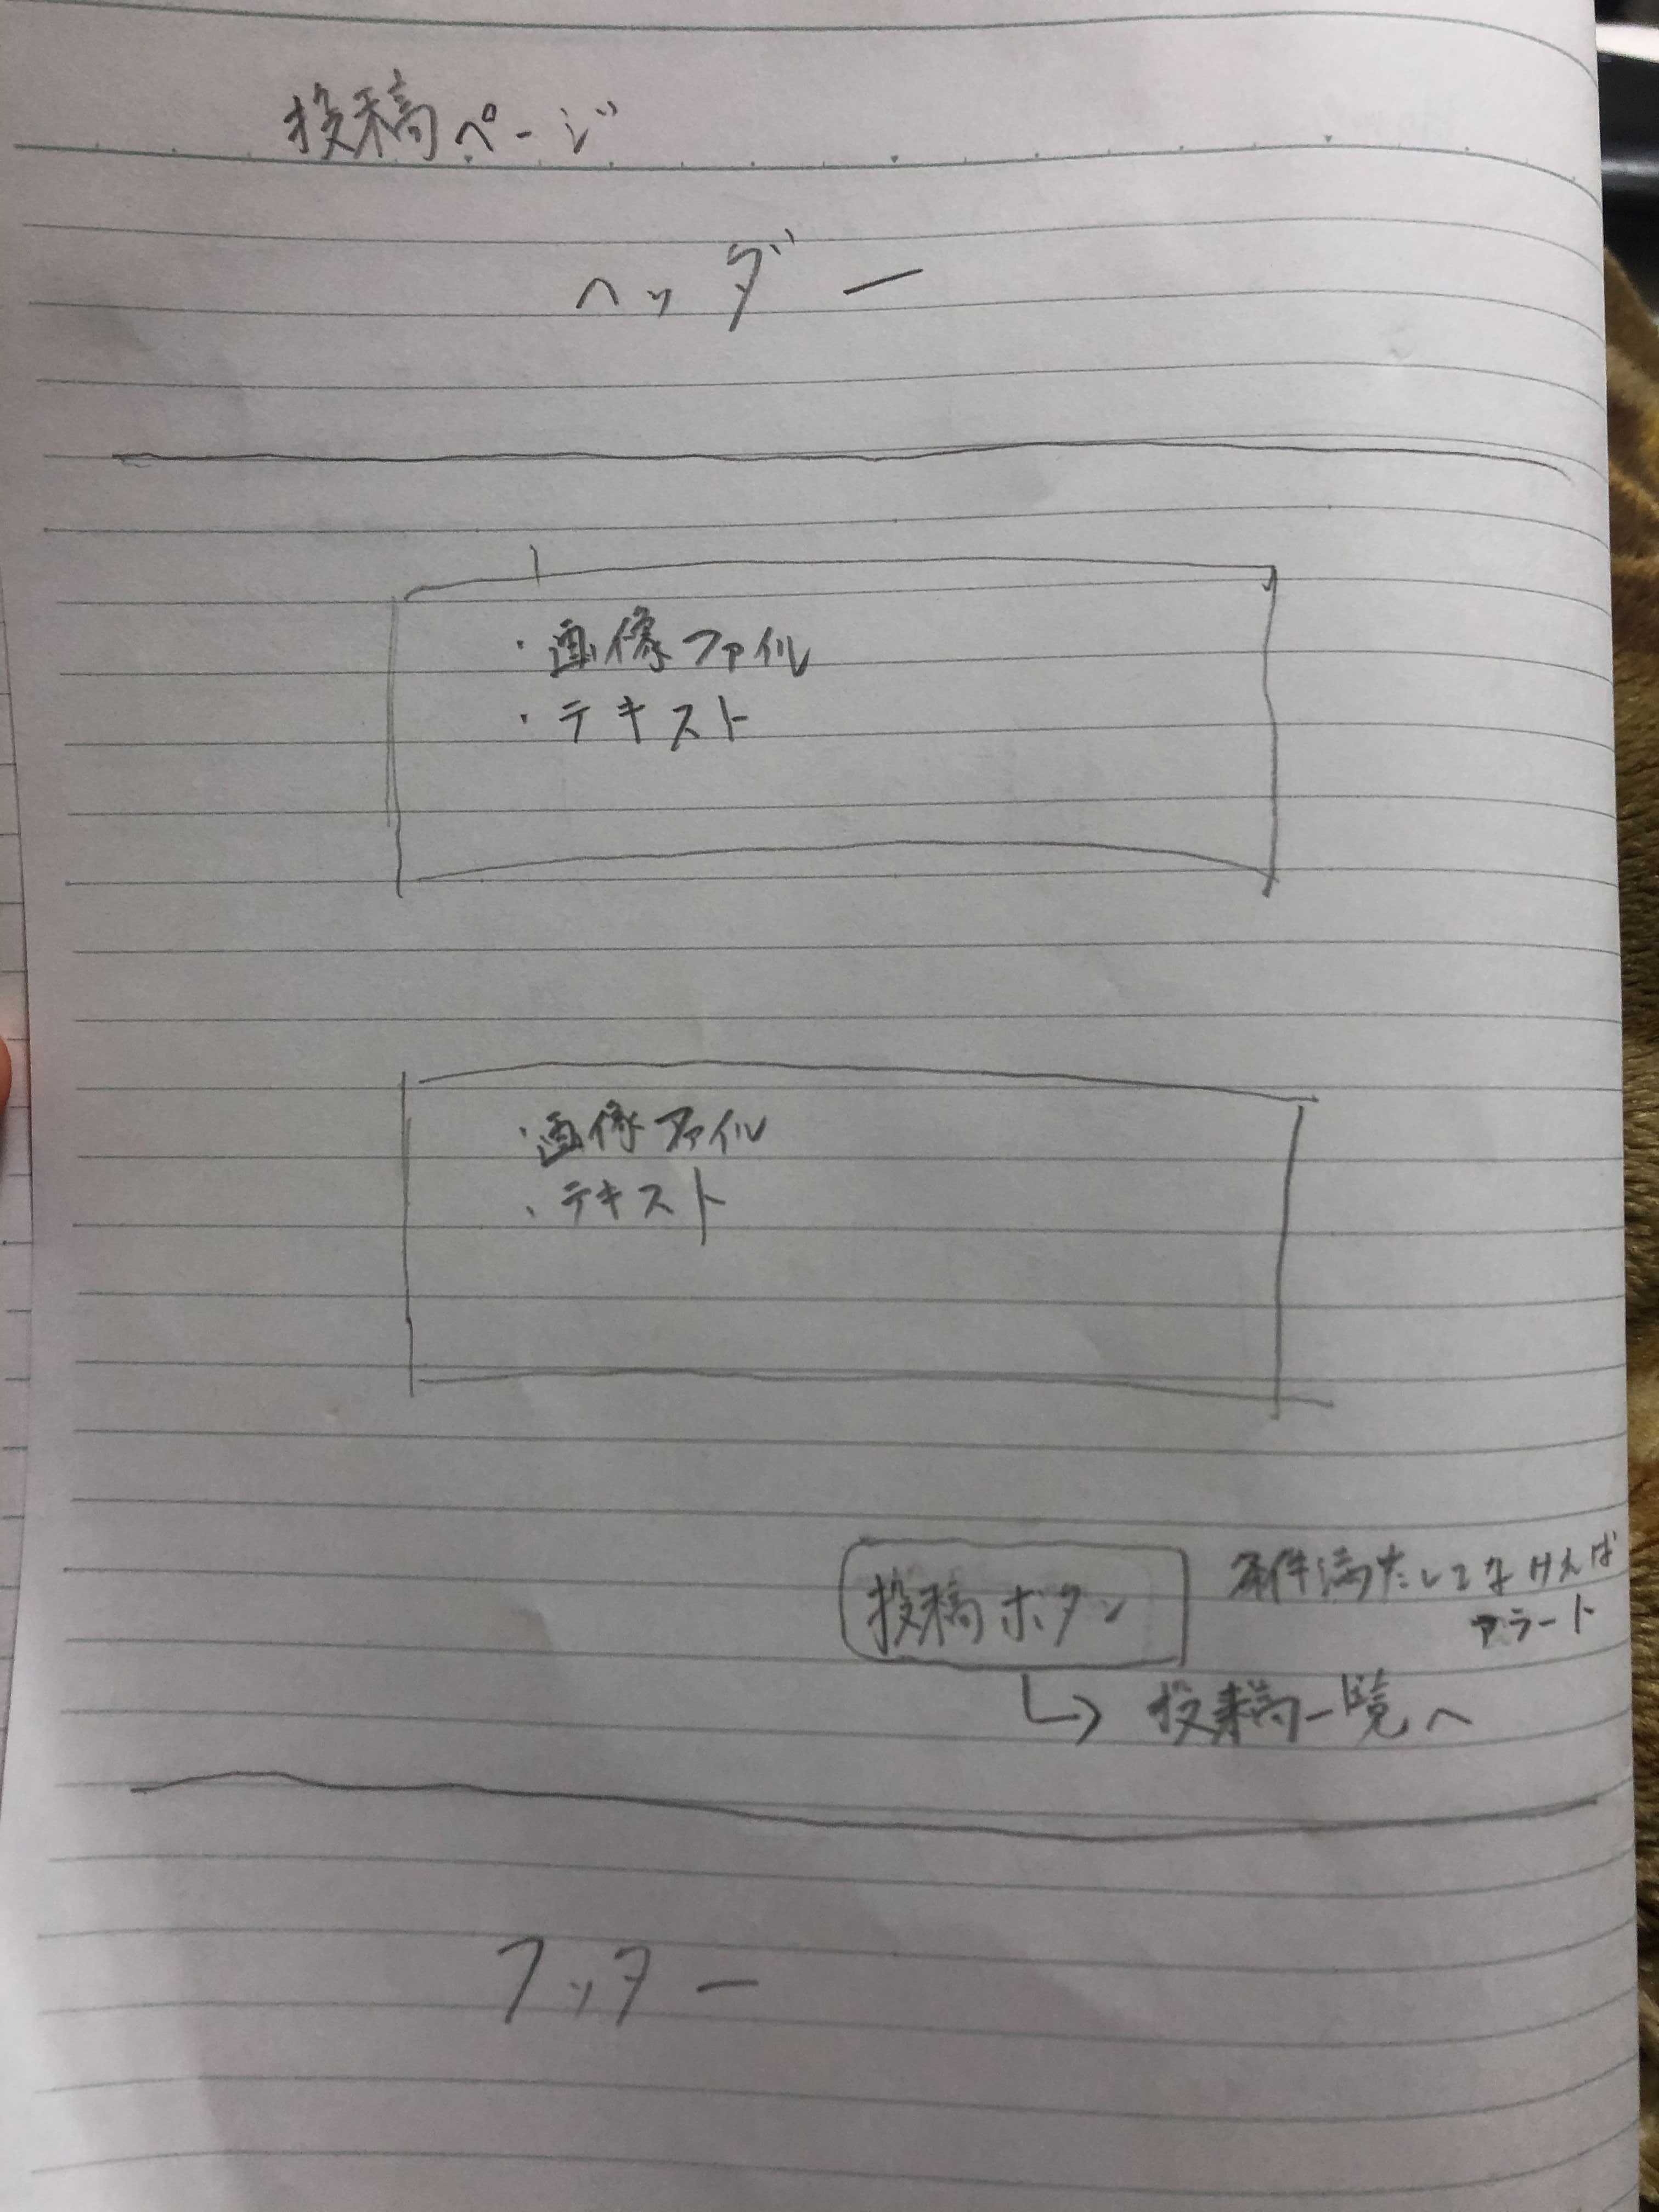 投稿ページ
ヘッダー
・画像ファイル
・テキスト
・画像ファイル
・テキスト
投稿ボタン
条件満たしてなければ
アラート
投稿一覧へ
フッター